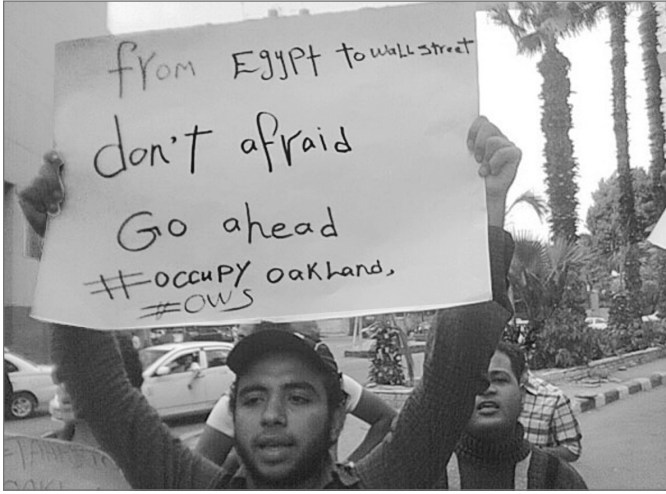 from Egypt to wall street
don't afraid
Go ahead
#OCCUPY Oakland,
#OWS